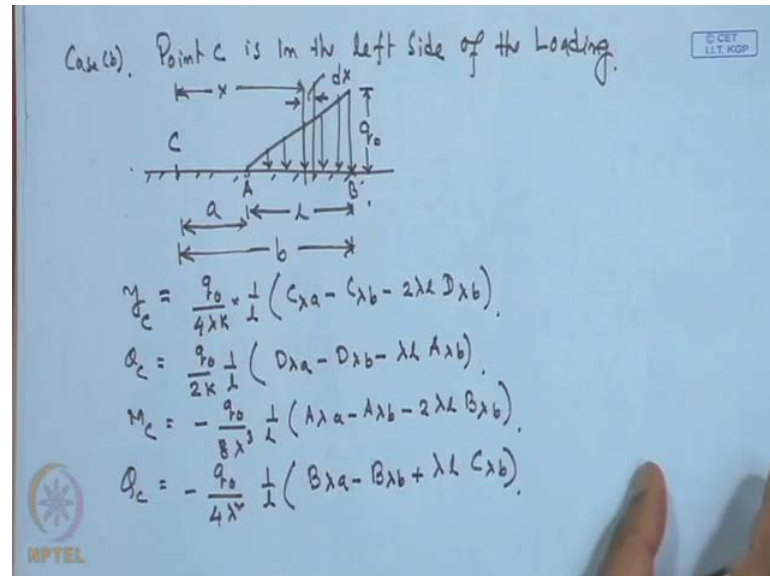 © CET
I.I.T. KGP
Case(b). Point C is in the left side of the Loading.
x
dx
q₀
C
A
B
a
L
b
y_c = q₀/4λK × 1/L (C_λa - C_λb - 2λL D_λb).
θ_c = q₀/2K 1/L (D_λa - D_λb - λL A_λb).
M_c = - q₀/8λ³ 1/L (A_λa - A_λb - 2λL B_λb).
Q_c = - q₀/4λ² 1/L (B_λa - B_λb + λL C_λb).
NPTEL